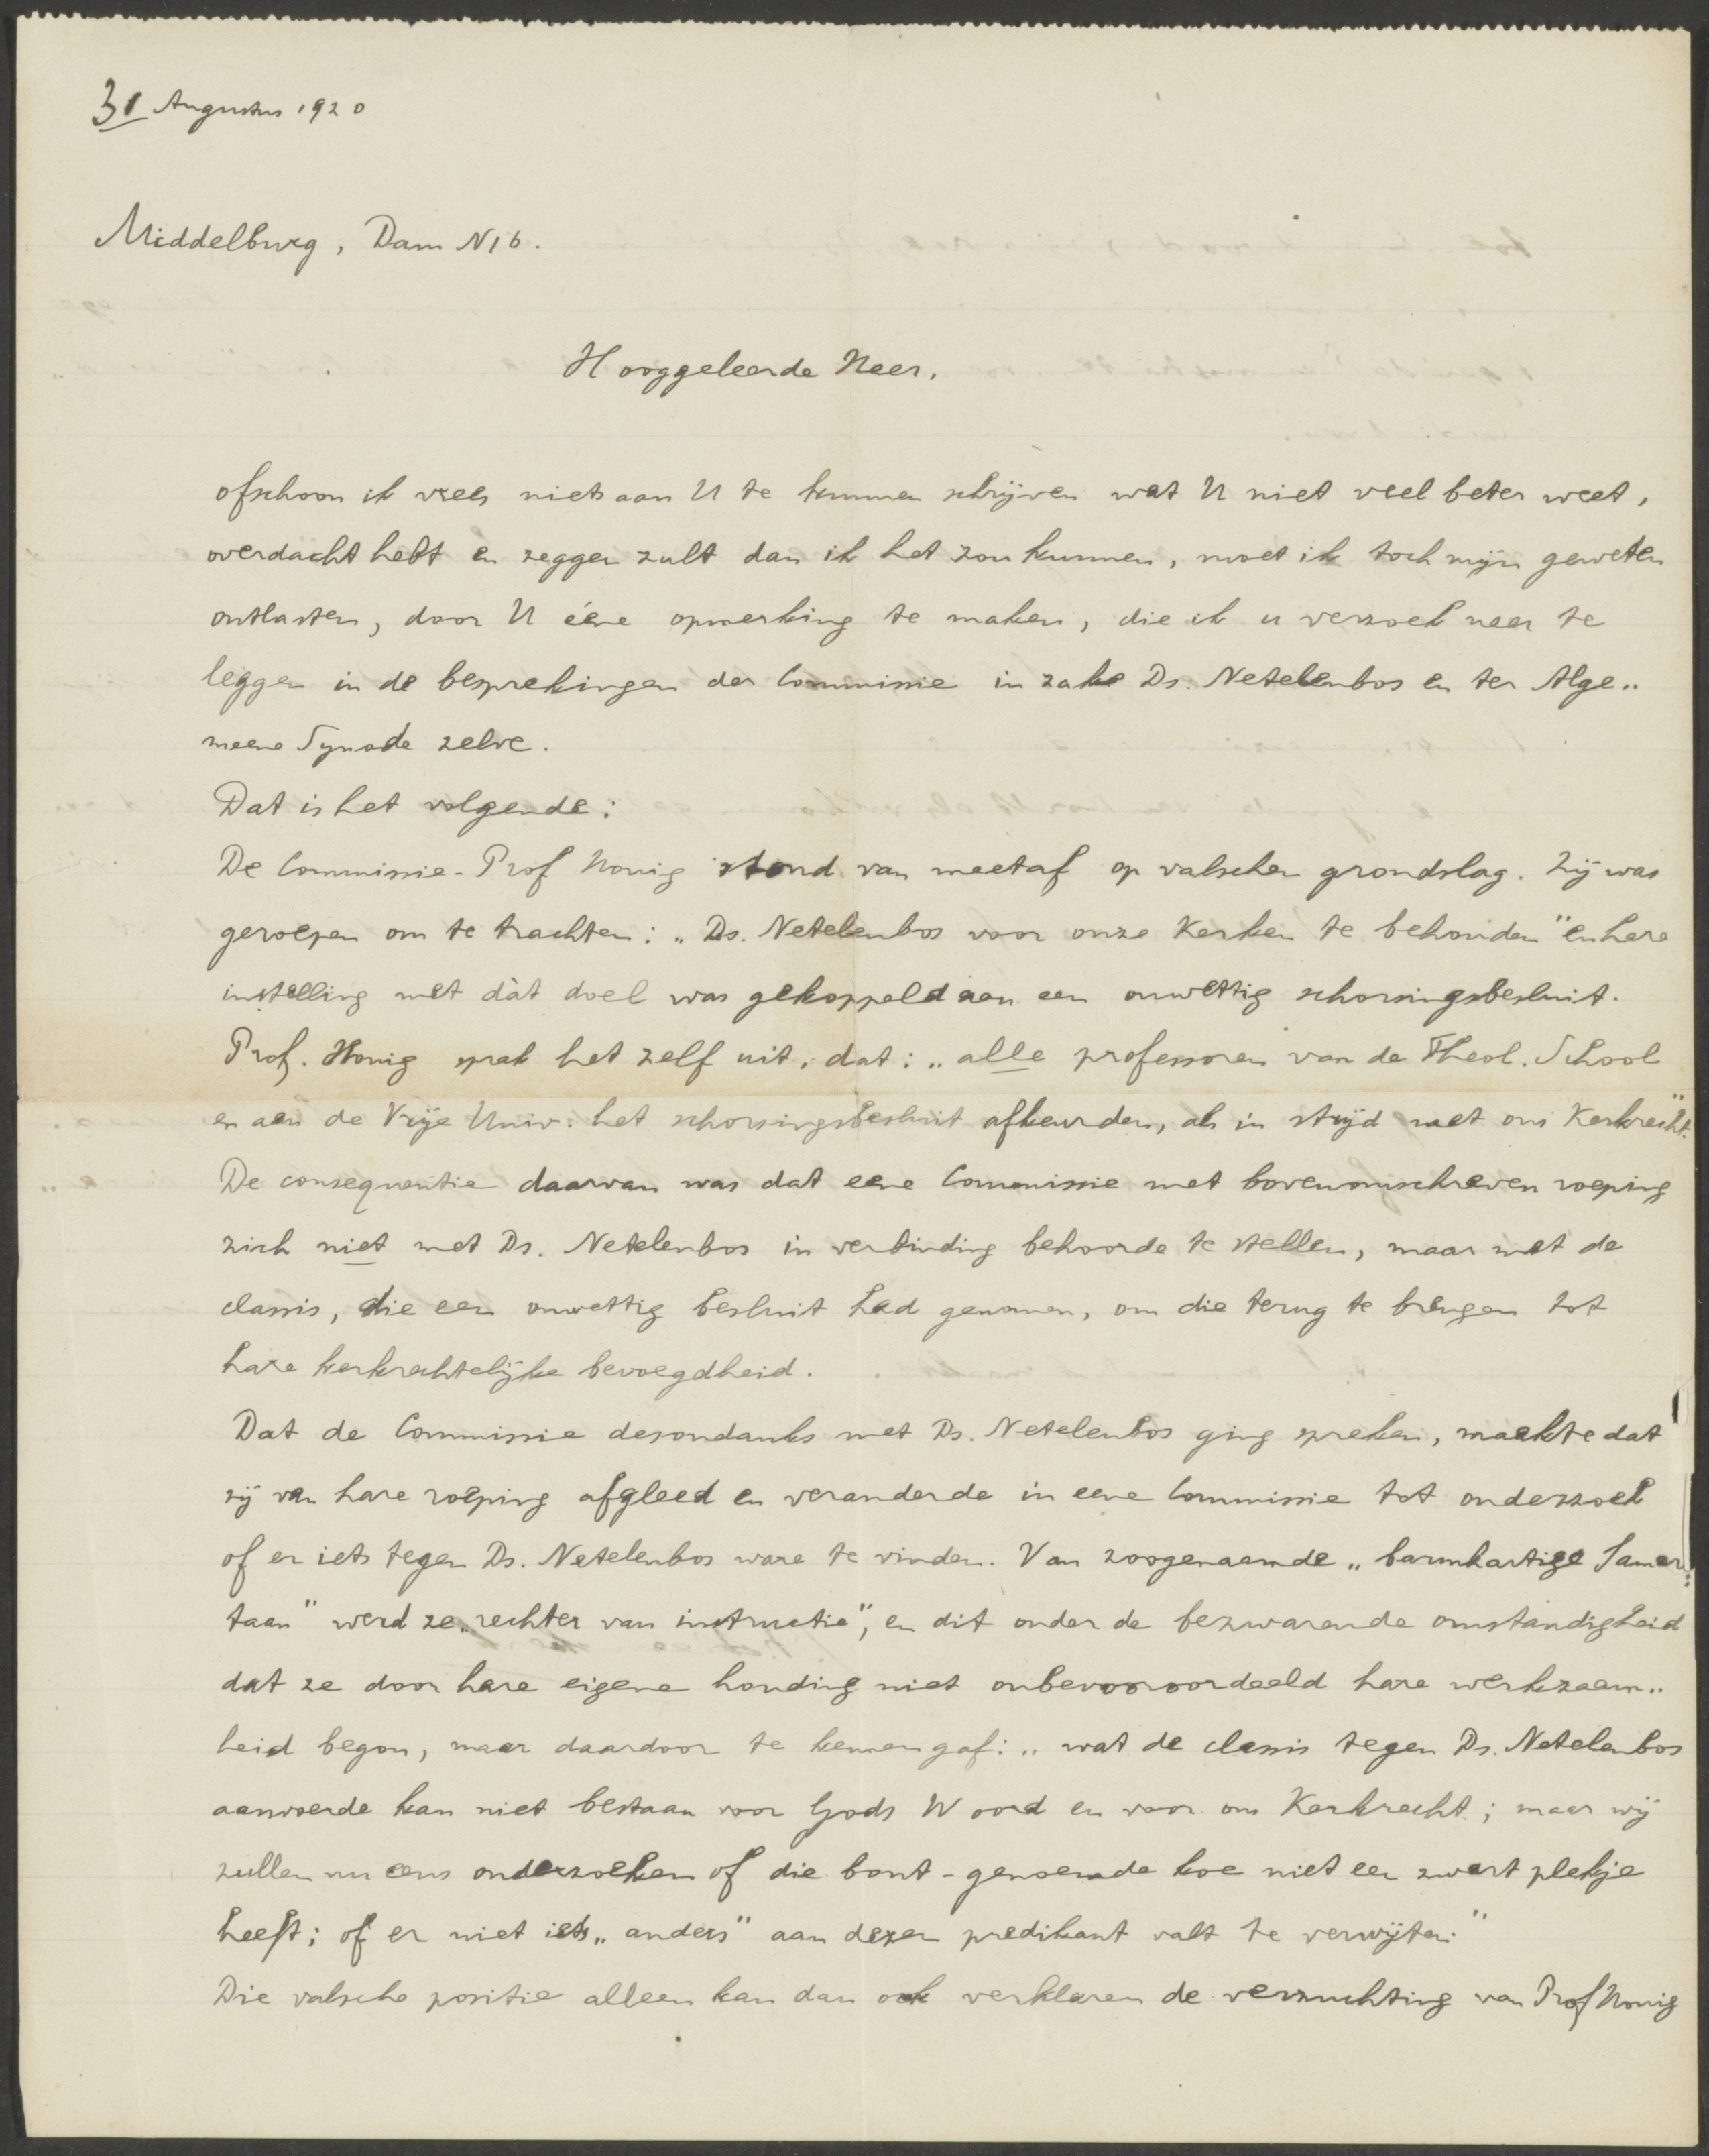 31 Augustus 1920
Middelburg, Dam N16.
Hooggeleerde Heer,
ofschoon ik vrees niets aan U te kunnen schrijven wat U niet veel beter weet,
overdacht hebt en zeggen zult dan ik het zou kunnen, moet ik toch mijn geweten
ontlasten, door U ééne opmerking te maken, die ik u verzoek neer te
leggen in de besprekingen der Commissie in zake Ds. Netelenbos en ter Alge„
meene Synode zelve.
Dat is het volgende:
De Commissie-Prof Honig stond van meetaf op valschen grondslag. Zij was
geroepen om te trachten: „Ds. Netelenbos voor onze Kerken te behouden" en hare
instelling met dàt doel was gekoppeld aan een onwettig schorsingsbesluit.
Prof. Honig sprak het zelf uit, dat: „alle professoren van de Theol. School
en aan de Vrije Univ: het schorsingsbesluit afkeurden, als in strijd met ons Kerkrecht."
De consequentie daarvan was dat eene Commissie met bovenomschreven roeping
zich niet met Ds. Netelenbos in verbinding behoorde te stellen, maar met de
classis, die een onwettig besluit had genomen, om die terug te brengen tot
hare kerkrechtelijke bevoegdheid.
Dat de Commissie desondanks met Ds. Netelenbos ging spreken, maakte dat
zij van hare roeping afgleed en veranderde in eene Commissie tot onderzoek
of er iets tegen Ds. Netelenbos ware te vinden. Van zoogenaamde „barmhartige Samari„
taan" werd ze „rechter van instructie", en dit onder de bezwarende omstandigheid
dat ze door hare eigene houding niet onbevooroordeeld hare werkzaam„
heid begon, maar daardoor te kennen gaf: „wat de classis tegen Ds. Netelenbos
aanvoerde kan niet bestaan voor Gods Woord en voor ons Kerkrecht; maar wij
zullen nu eens onderzoeken of die bont-genoemde koe niet een zwart plekje
heeft; of er niet iets „anders" aan dezen predikant valt te verwijten."
Die valsche positie alleen kan dan ook verklaren de verzuchting van Prof Honig